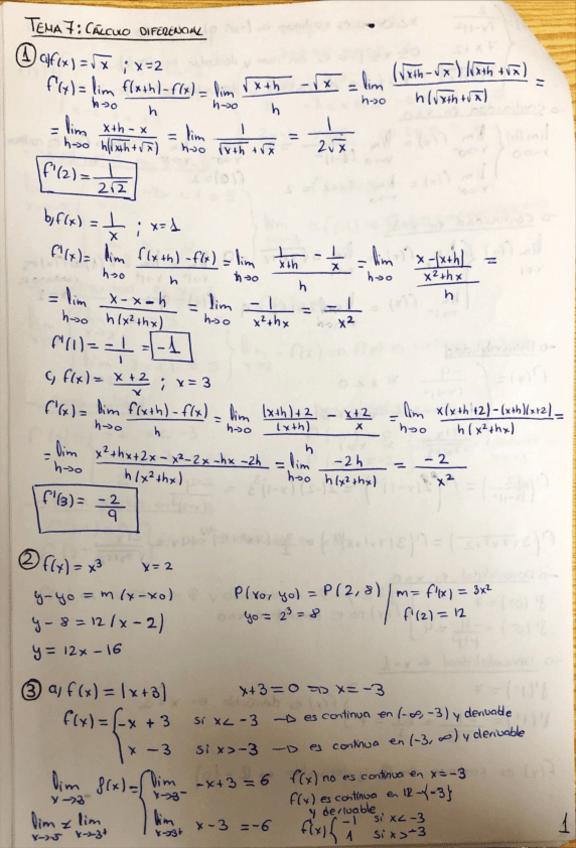 TEMA 7: CÁLCULO DIFERENCIAL
① a) f(x) = √x ; x=2
f'(x) = lim h→0 f(x+h) - f(x) / h = lim h→0 √x+h - √x / h = lim h→0 (√x+h - √x)(√x+h + √x) / h(√x+h + √x) =
= lim h→0 x+h - x / h(√x+h + √x) = lim h→0 1 / √x+h + √x = 1 / 2√x
f'(2) = 1 / 2√2
b) f(x) = 1/x ; x=1
f'(x) = lim h→0 f(x+h) - f(x) / h = lim h→0 1/x+h - 1/x / h = lim h→0 x-(x+h) / x²+hx / h =
= lim h→0 x - x - h / h(x²+hx) = lim h→0 -1 / x²+hx = -1 / x²
f'(1) = -1/1 = -1
c) f(x) = x+2 / x ; x=3
f'(x) = lim h→0 f(x+h) - f(x) / h = lim h→0 (x+h)+2 / (x+h) - x+2 / x / h = lim h→0 x(x+h+2) - (x+h)(x+2) / h(x²+hx) =
= lim h→0 x²+hx+2x-x²-2x-hx-2h / h(x²+hx) = lim h→0 -2h / h(x²+hx) = -2 / x²
f'(3) = -2 / 9
② f(x) = x³ x=2
y-y0 = m(x-x0) P(x0, y0) = P(2,8) / m = f'(x) = 3x²
y-8 = 12(x-2) y0 = 2³ = 8 f'(2) = 12
y = 12x - 16
③ a) f(x) = |x+3| x+3=0 ⇒ x=-3
f(x) = { -x + 3 si x< -3 → es continua en (-∞,-3) y derivable
x - 3 si x>-3 → es continua en (-3, ∞) y derivable
lim x→3 f(x) = { lim x→3⁻ -x+3 = 6 f(x) no es continua en x=-3
f(x) es continua en ℝ-{-3}
y derivable
lim x→3⁻ ≠ lim x→3⁺ lim x→3⁺ x-3 = -6 f(x) { -1 si x<-3
1 si x>-3
1